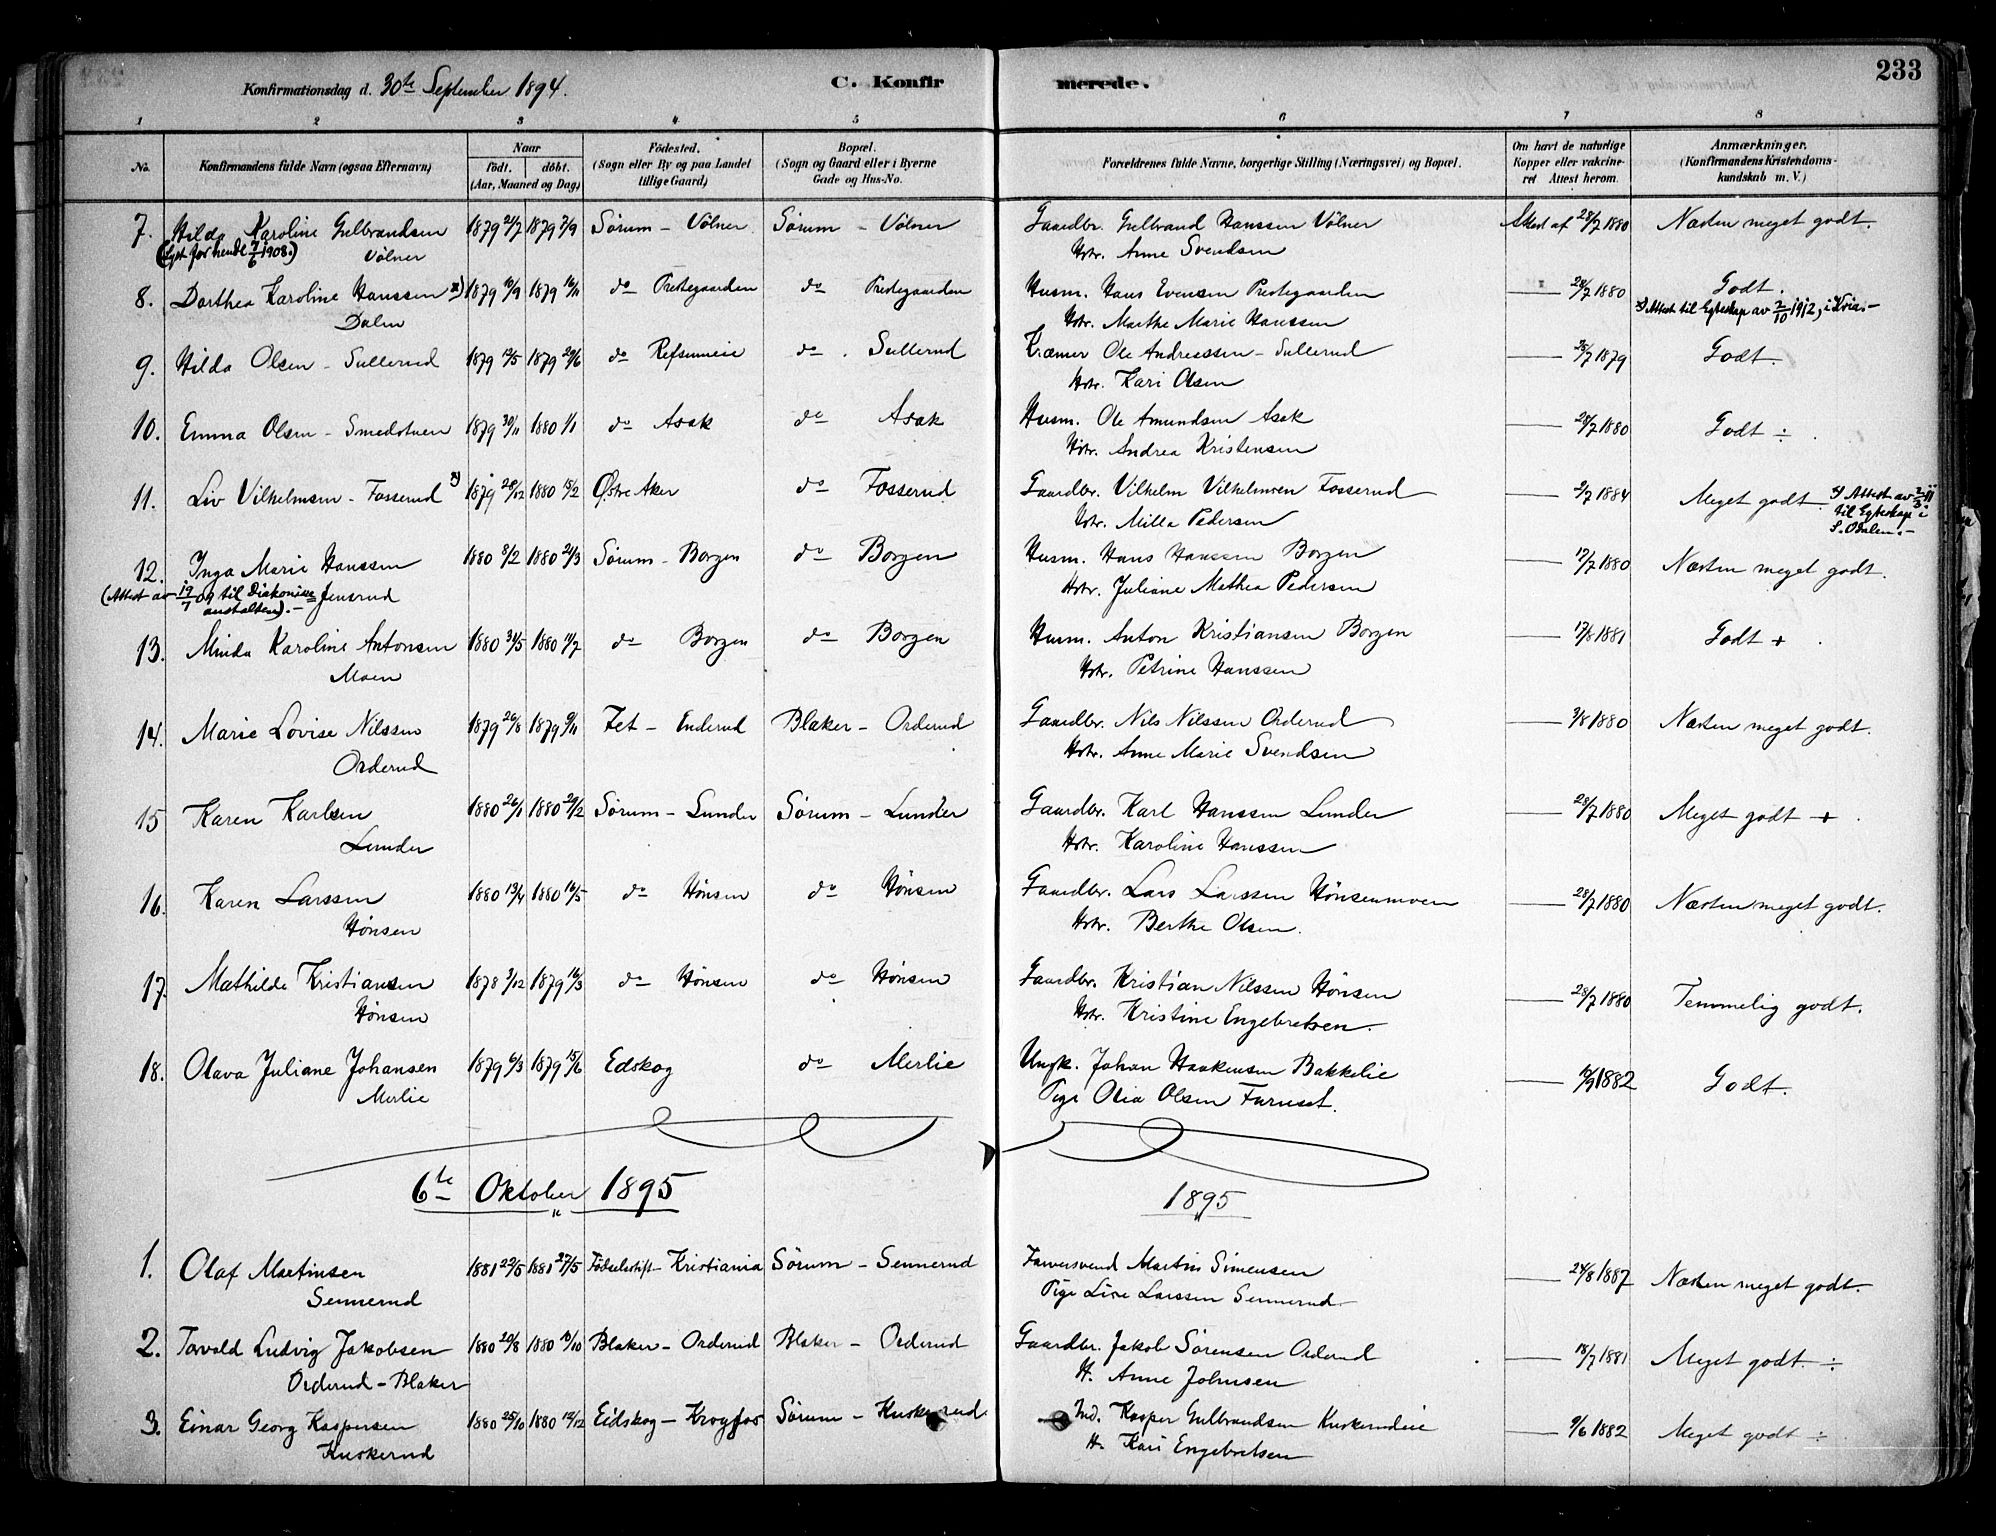 233
Konfirmationsdag d. 30te September 1894.
C. Konfirmerede.
1 2 3 4 5 6 7 8
No. Konfirmandens fulde Navn (ogsaa Efternavn) Naar født. døbt. (Aar, Maaned og Dag) Födested. (Sogn eller By og paa Landet tillige Gaard) Bopæl. (Sogn og Gaard eller i Byerne Gade og Hus-No. Forældrenes fulde Navne, borgerlige Stilling (Næringsvei) og Bopæl. Om havt de naturlige Kopper eller vakcineret Attest herom. Anmærkninger. (Konfirmandens Kristendomskundskab m. V.)
7. Hilda Karoline Gulbrandsen 1879 21/7 1879 7/9 Sørum - Vølner Sørum - Vølner Gaardbr. Gulbrand Hanssen Vølner Attest af 28/7 1880 Næsten meget godt.
(Lyst for hende 7/6 1908.) Vølner Hstr. Anne Svendsen
8. Dorthea Karoline Hanssen x) 1879 10/9 1879 16/11 do Prestegaarden do Prestegaarden Husm. Hans Evensen Prestegaarden — 28/7 1880 Godt.
Dalen Hstr. Marthe Marie Hanssen x) Attest til Egteskap av 2/10 1912, i Kria.-
9. Hilda Olsen - Sullerud 1879 12/5 1879 29/6 do Refsumeie do. Sullerud Kræmer Ole Andreassen - Sullerud — 25/7 1879 Godt.
Hstr. Kari Olsen
10. Emma Olsen - Smedstuen 1879 30/11 1880 1/1 do Asak do Asak Husm. Ole Amundsen Asak — 28/7 1880 Godt ÷
Hstr. Andrea Kristensen
11. Liv Vilhelmsen - Fosserud x) 1879 28/12 1880 15/2 Østre Aker do Fosserud Gaardbr. Vilhelm Vilhelmsen Fosserud — 2/7 1884 Meget godt x) Attest av 2/3 11
Hstr. Milla Pedersen til Egteskap i S. Odalen.-
12. Inga Marie Hanssen 1880 8/2 1880 21/3 Sørum - Borgen do Borgen Husm. Hans Hanssen Borgen — 17/7 1880 Næsten meget godt.
(Attest av 19/7 09 til Diakonisseanstalten).- Jensrud Hstr. Juliane Mathea Pedersen
13. Minda Karoline Antonsen 1880 31/5 1880 11/7 do Borgen do Borgen Husm. Anton Kristiansen Borgen — 17/8 1881 Godt +
Moen Hstr. Petrine Hanssen
14. Marie Lovise Nilssen 1879 26/8 1879 9/11 Fet - Enderud Blaker - Orderud Gaardbr. Nils Nilssen Orderud — 3/8 1880 Næsten meget godt.
Orderud Hstr. Anne Marie Svendsen
15 Karen Karlsen 1880 26/1 1880 29/2 Sørum - Lunder Sørum - Lunder Gaardbr. Karl Hanssen Lunder — 28/7 1880 Meget godt +
Lunder Hstr. Karoline Hanssen
16. Karen Larssen 1880 13/4 1880 16/5 do Hønsen do Hønsen Gaardbr. Lars Larssen Hønsenmoen — 28/7 1880 Næsten meget godt.
Hønsen Hstr. Berthe Olsen.
17. Mathilde Kristiansen 1878 3/12 1879 16/3 do Hønsen do Hønsen Gaardbr. Kristian Nilssen Hønsen — 28/7 1880 Temmelig godt.
Hønsen Hstr. Kristine Engebretsen.
18. Olava Juliane Johansen 1879 6/3 1879 15/6 Edskog do Merlie Ungk. Johan Haakensen Bakkelie — 12/9 1882 Godt.
Merlie Pige Olia Olsen Furuset.
6te Oktober 1895 1895
1. Olaf Martinsen 1881 22/5 1881 27/5 Fødselsstift - Kristiania Sørum - Sennerud Farversvend Martin Simensen — 24/8 1887 Næsten meget godt.
Sennerud Pige Lise Larssen Sennerud
2. Torvald Ludvig Jakobsen 1880 20/8 1880 10/10 Blaker - Orderud Blaker - Orderud Gaardbr. Jakob Sørensen Orderud — 18/7 1881 Meget godt. ÷
Orderud - Blaker H. Anne Johnsen
3. Einar Georg Kaspersen 1880 25/10 1880 12/12 Eidskog - Krogfos Sørum - Kuskerud Ind. Kasper Gulbrandsen Kuskerudeie — 9/6 1882 Meget godt ÷
Kuskerud H. Kari Engebretsen